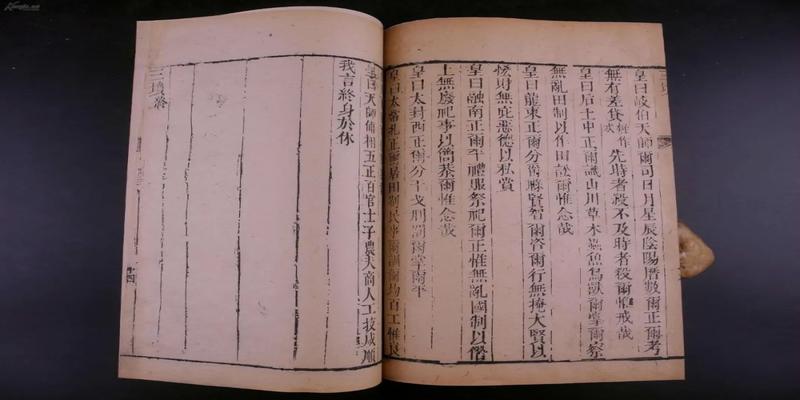 皇曰岐伯天師爾司日月星辰陰陽曆數爾正爾考
無有差貸 先時者殺不及時者殺爾惟戒哉
皇曰后土中正爾識山川草木蟲魚鳥獸爾掌爾察
無亂田制以作田訟爾惟念哉
皇曰龍東正爾分爵祿賢智爾咨爾行無掩大賢以
恡財無庇惡德以私賞
皇曰融南正爾平禮服祭祀爾正惟無亂國制以僭
上無廢祀事以簡恭爾惟念哉
皇曰太封西正爾分干戈刑罰爾掌爾平
皇曰太常北正爾居田制民事爾訓爾均百工惟良
皇曰天師輔相五正百官士子農夫商人工技咸順
我言終身於休
三墳終
十四